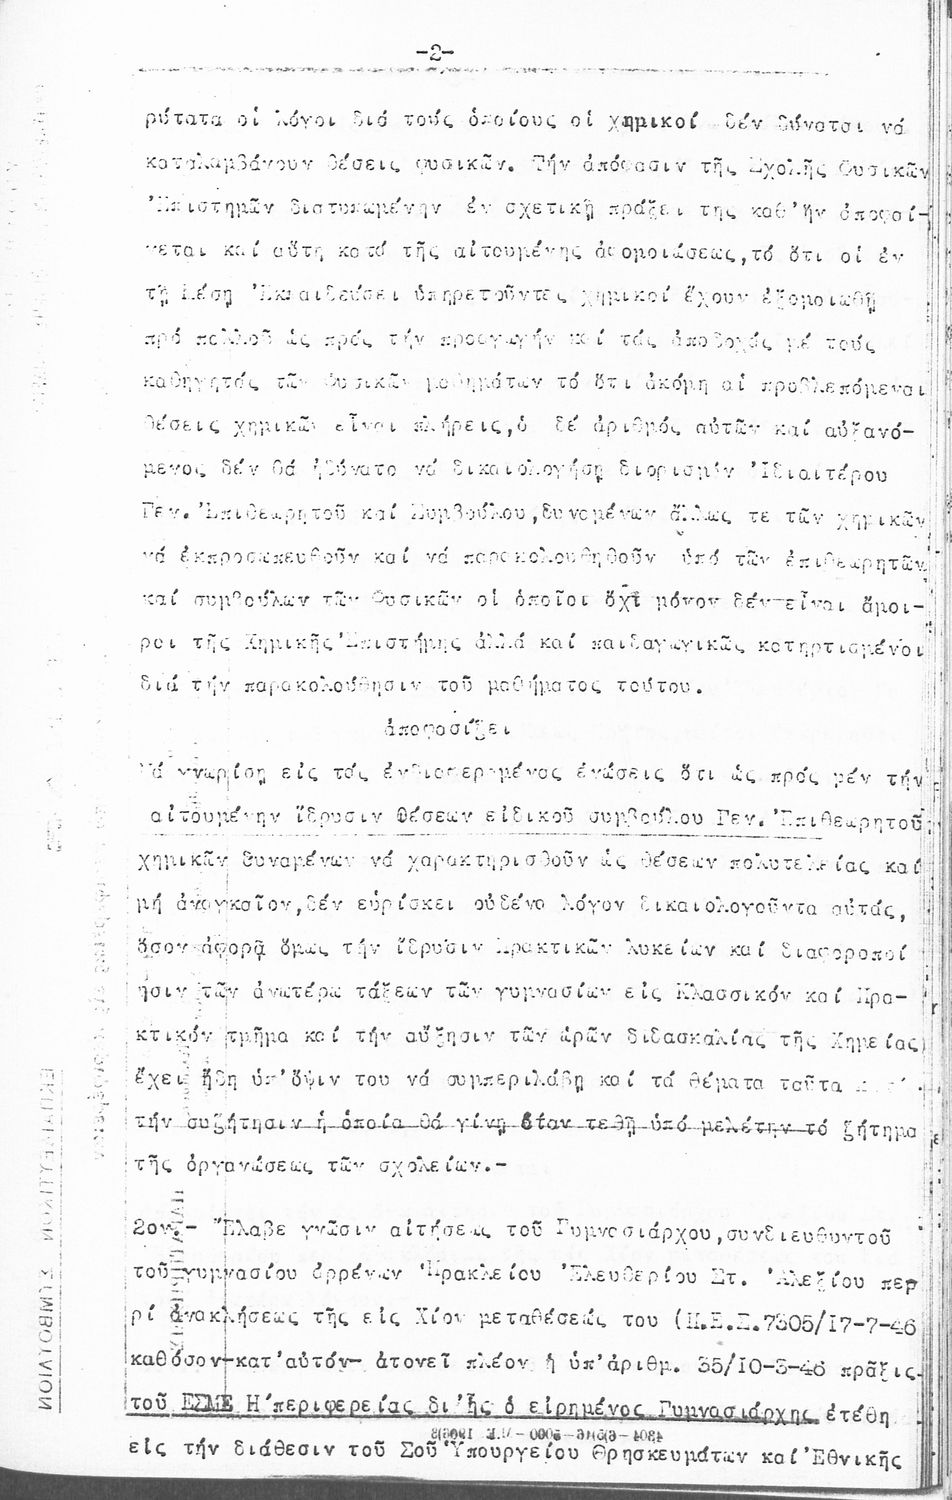 -2-
ρύτατα οἱ λόγοι διά τούς ὁποίους οἱ χημικοί δέν δύναται νά
καταλαμβάνουν θέσεις φυσικῶν. Τήν ἀπόφασιν τῆς Σχολῆς Φυσικῶν
Ἐπιστημῶν διατυπωμένην ἐν σχετικῇ πράξει της καθ'ἥν ἀποφαί-
νεται καί αὕτη κατά τῆς αἰτουμένης ἀφομοιώσεως,τό ὅτι οἱ ἐν
τῇ Μέσῃ Ἐκπαιδεύσει ὑπηρετοῦντες χημικοί ἔχουν ἐξομοιωθῇ
πρό πολλοῦ ὡς πρός τήν προαγωγήν καί τάς ἀποδοχάς μέ τούς
καθηγητάς τῶν Φυσικῶν μαθημάτων τό ὅτι ἀκόμη αἱ προβλεπόμεναι
θέσεις χημικῶν εἶναι πλήρεις,ὁ δέ ἀριθμός αὐτῶν καί αὐξανό-
μενος δέν θά ἠδύνατο νά δικαιολογήσῃ διορισμόν Ἰδιαιτέρου
Γεν.Ἐπιθεωρητοῦ καί Συμβούλου,δυναμένων ἄλλως τε τῶν χημικῶν
νά ἐκπροσωπευθοῦν καί νά παρακολουθηθοῦν ὑπό τῶν ἐπιθεωρητῶν
καί συμβούλων τῶν Φυσικῶν οἱ ὁποῖοι ὄχι μόνον δέν εἶναι ἄμοι-
ροι τῆς Χημικῆς Ἐπιστήμης ἀλλά καί παιδαγωγικῶς κατηρτισμένοι
διά τήν παρακολούθησιν τοῦ μαθήματος τούτου.
ἀποφασίζει
Νά γνωρίσῃ εἰς τάς ἐνδιαφερομένας ἑνώσεις ὅτι ὡς πρός μέν τήν
αἰτουμένην ἵδρυσιν θέσεων εἰδικοῦ συμβούλου Γεν.Ἐπιθεωρητοῦ
χημικῶν δυναμένων νά χαρακτηρισθοῦν ὡς θέσεων πολυτελείας καί
μή ἀναγκαῖον,δέν εὑρίσκει οὐδένα λόγον δικαιολογοῦντα αὐτάς,
ὅσον ἀφορᾷ ὅμως τήν ἵδρυσιν Πρακτικῶν λυκείων καί διαφοροποί
ησιν τῶν ἀνωτέρω τάξεων τῶν γυμνασίων εἰς Κλασσικόν καί Πρα-
κτικόν τμῆμα καί τήν αὔξησιν τῶν ὡρῶν διδασκαλίας τῆς Χημείας
ἔχει ἤδη ὑπ'ὄψιν του νά συμπεριλάβῃ καί τά θέματα ταῦτα
τήν συζήτησιν ἡ ὁποία θά γίνῃ ὅταν τεθῇ ὑπό μελέτην τό ζήτημα
τῆς ὀργανώσεως τῶν σχολείων.-
2ον.- Ἔλαβε γνῶσιν αἰτήσεως τοῦ Γυμνασιάρχου,συνδιευθυντοῦ
τοῦ γυμνασίου ἀρρένων Ἡρακλείου Ἐλευθερίου Στ. Ἀλεξίου πε
ρί ἀνακλήσεως τῆς εἰς Χίον μεταθέσεώς του (Π.Ε.Σ.7305/17-7-46
καθόσον-κατ'αὐτόν- ἀτονεῖ πλέον ἡ ὑπ'ἀριθμ. 35/10-3-46 πρᾶξις
τοῦ ΕΣΜΕ Η'περιφερείας δι'ἧς ὁ εἰρημένος Γυμνασιάρχης ἐτέθη
εἰς τήν διάθεσιν τοῦ Σοῦ Ὑπουργείου Θρησκευμάτων καί Ἐθνικῆς